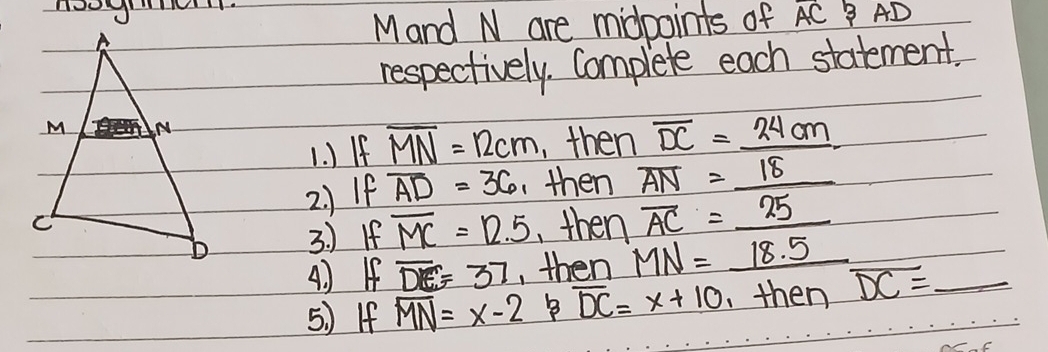 Assignment:
M and N are midpoints of AC & AD
respectively. Complete each statement.
A
M N
C
D
1.) If MN = 12cm, then DC = 24 cm
2.) If AD = 36, then AN = 18
3.) If MC = 12.5, then AC = 25
4.) If DC = 37, then MN = 18.5
5.) If MN = x-2 & DC = x+10, then DC = ___